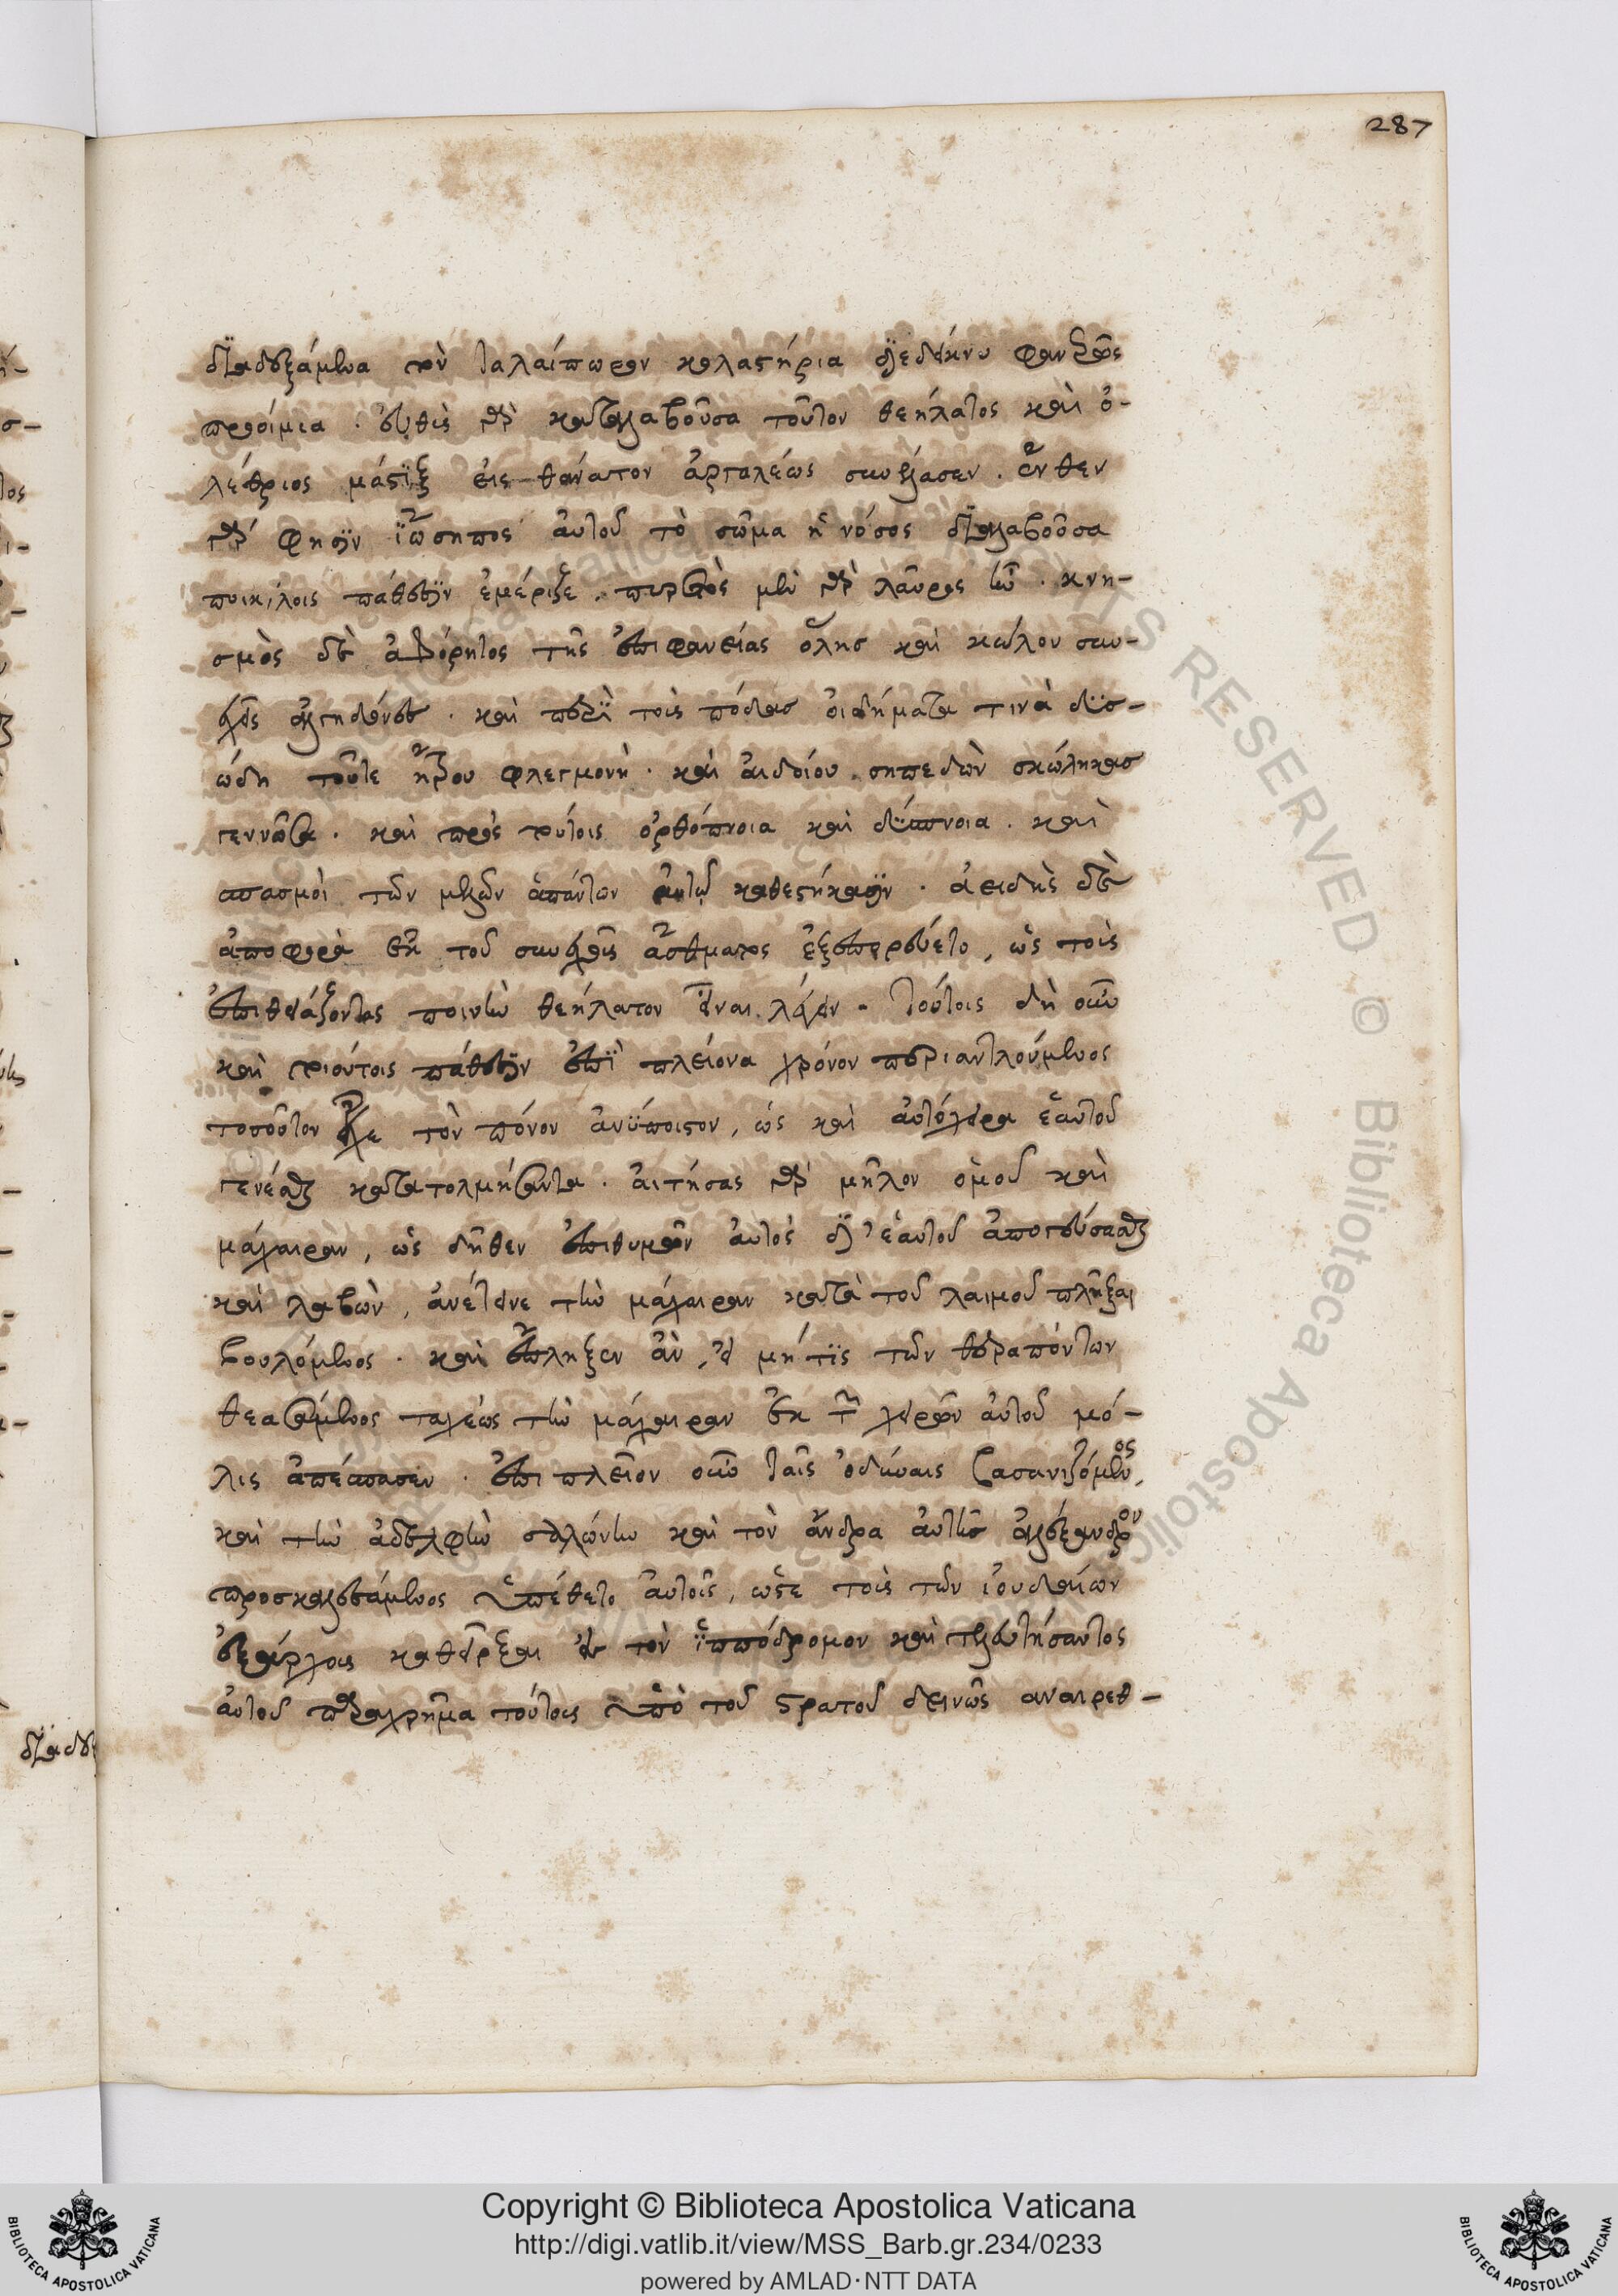 287
διαδεξάμενα τὸν ταλαίπωρον κολαστήρια ὑπεδείκνυ φανερῶς
προοίμια . εὐθὺς γὰρ καταλαβοῦσα τοῦτον θεήλατος καὶ ὀ-
λέθριος μάστιξ εἰς θάνατον ἀργαλέως συνήλασεν . ἔνθεν
γάρ φησιν ἰώσηπος αὐτοῦ τὸ σῶμα ἡ νόσος διαλαβοῦσα
ποικίλοις πάθεσιν ἐμέριζε . πυρετὸς μὲν γὰρ λαῦρος ἦν . κνη-
σμὸς δὲ ἀφόρητος τῆς ἐπιφανείας ὅλης καὶ κώλου συν-
εχεῖς ἀλγηδόνες . καὶ περὶ τοὺς πόδας οἰδήματα τινὰ δυσ-
ώδη τοῦτε ἤτρου φλεγμονὴ . καὶ αἰδοίου σηπεδὼν σκώληκας
γεννῶσα . καὶ πρὸς τούτοις ὀρθόπνοια καὶ δύσπνοια . καὶ
σπασμοὶ τῶν μελῶν ἁπάντων αὐτῷ καθεστήκασιν . ἀειδὴς δὲ
ἀποφορὰ ἐκ τοῦ συνεχοῦς ἄσθματος ἐξεπορεύετο, ὡς τοὺς
ἐπιθειάζοντας ποινὴν θεήλατον εἶναι λέγειν . τούτοις δὴ οὖν
καὶ τοιούτοις πάθεσιν ἐπὶ πλείονα χρόνον περιαντλούμενος
τοσοῦτον εἶχε τὸν πόνον ἀνύποιστον, ὡς καὶ αὐτόχειρα ἑαυτοῦ
γενέσθαι κατατολμήσαντα . αἰτήσας γὰρ μῆλον ὁμοῦ καὶ
μάχαιραν, ὡς δῆθεν ἐπιθυμῶν αὐτὸς δι' ἑαυτοῦ ἀπογεύσασθαι
καὶ λαβὼν, ἀνέτεινε τὴν μάχαιραν κατὰ τοῦ λαιμοῦ πλῆξαι
βουλόμενος . καὶ ἔπληξεν ἂν, εἰ μή τις τῶν θεραπόντων
θεασάμενος ταχέως τὴν μάχαιραν ἐκ τῶν χειρῶν αὐτοῦ μό-
λις ἀπέσπασεν . ἐπιπλεῖον οὖν ταῖς ὀδύναις βασανιζόμενος,
καὶ τὴν ἀδελφὴν σαλώνην καὶ τὸν ἄνδρα αὐτῆς ἀλέξανδρον
προσκαλεσάμενος ὑπέθετο αὐτοῖς, ὥστε τοὺς τῶν ἰουδαίων
ἐξάρχους καθεῖρξαι εἰς τὸν ἱππόδρομον καὶ τελευτήσαντος
αὐτοῦ παραχρῆμα τούτους ὑπὸ τοῦ στρατοῦ δεινῶς αναιρεθ-
Copyright © Biblioteca Apostolica Vaticana
http://digi.vatlib.it/view/MSS_Barb.gr.234/0233
powered by AMLAD·NTT DATA